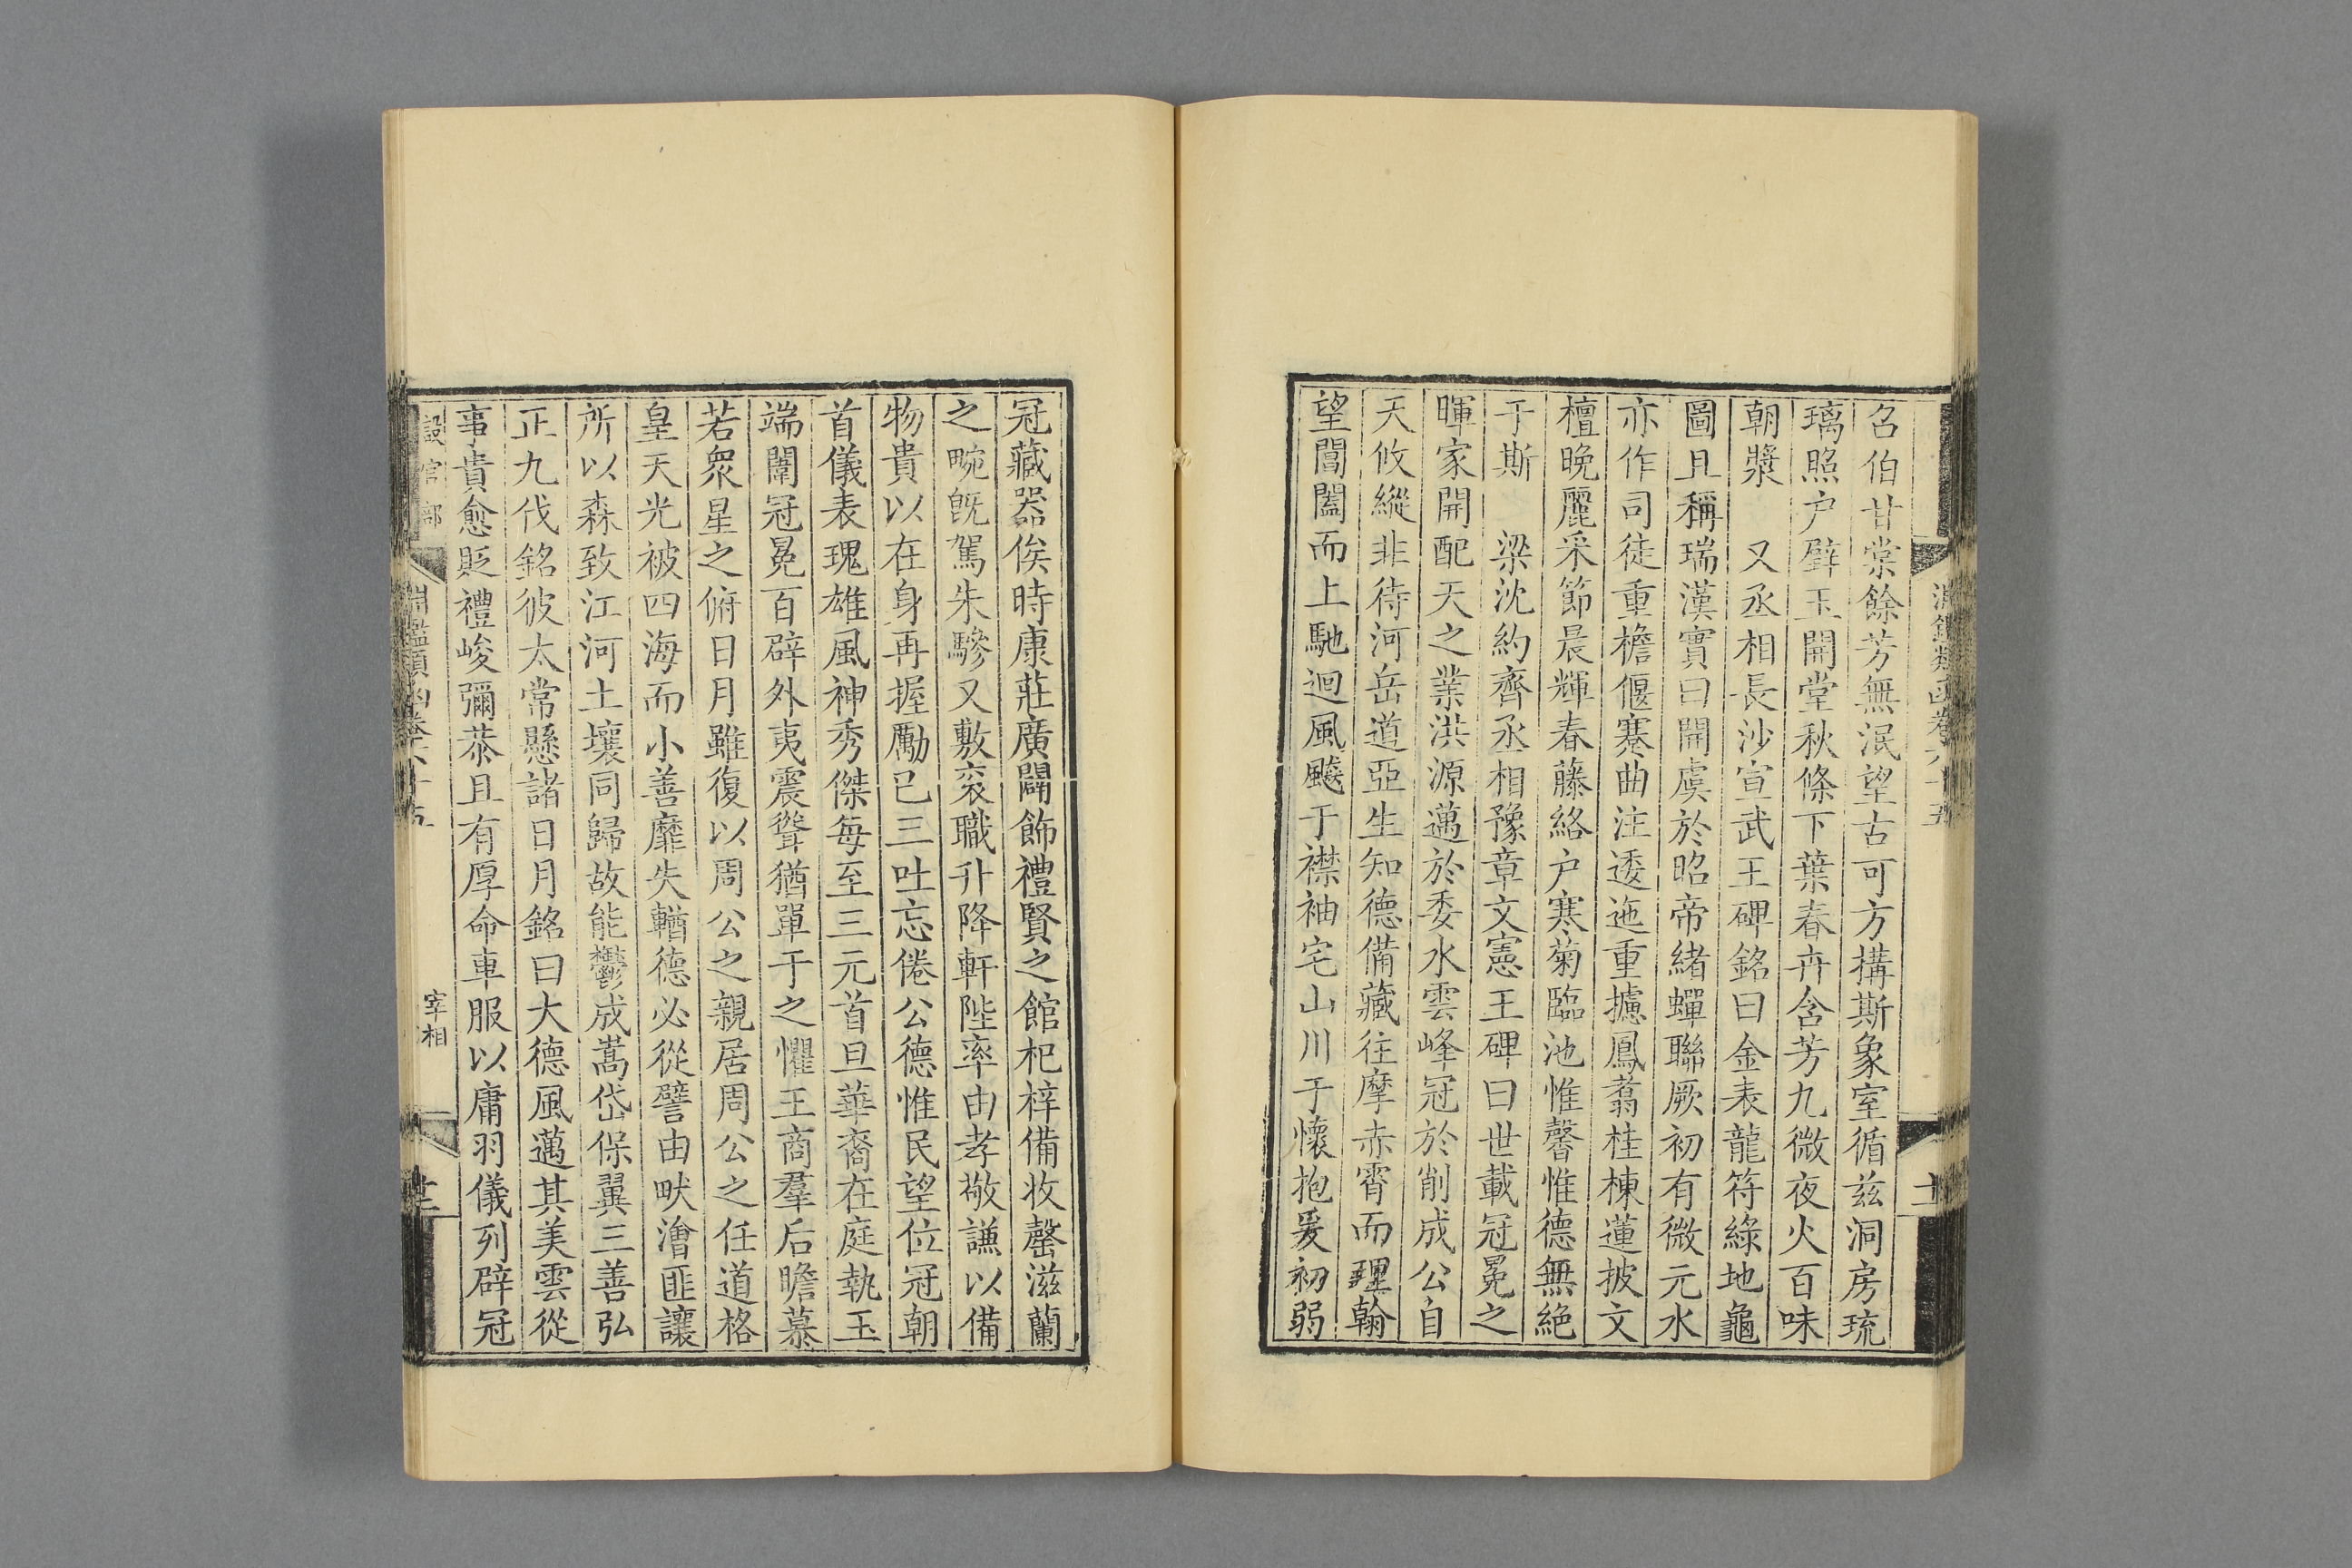 召伯甘棠餘芳無泯望古可方構斯象室循兹洞房琉
璃照户璧玉開堂秋條下葉春卉含芳九微夜火百味
朝漿　又丞相長沙宣武王碑銘曰金表龍符綠地龜
圖且稱瑞漢實曰開虞於昭帝緒蟬聯厥初有微元水
亦作司徒重檐偃蹇曲注逶迤重攄鳳翥桂棟蓮披文
檀晚麗采節晨輝春藤絡户寒菊臨池惟馨惟德無絶
于斯　梁沈約齊丞相豫章文憲王碑曰世載冠冕之
暉家開配天之業洪源邁於委水雲峰冠於削成公自
天攸縱非待河岳道亞生知德備藏往摩赤霄而理翰
望閶闔而上馳迴風飈于襟袖宅山川于懷抱爰初弱
冠藏器俟時康莊廣闢飾禮賢之館杞梓備收罄滋蘭
之畹旣駕朱驂又敷衮職升降軒陛率由孝敬謙以備
物貴以在身再握勵已三吐忘倦公德惟民望位冠朝
首儀表瑰雄風神秀傑每至三元首旦華裔在庭執玉
端闈冠冕百辟外夷震聳猶單于之懼王商羣后瞻慕
若衆星之俯日月雖復以周公之親居周公之任道格
皇天光被四海而小善靡失輶德必從譬由畎澮匪讓
所以森致江河土壤同歸故能鬱成嵩岱保翼三善弘
正九伐銘彼太常懸諸日月銘曰大德風邁其美雲從
事貴愈貶禮峻彌恭且有厚命車服以庸羽儀列辟冠
設官部
宰相